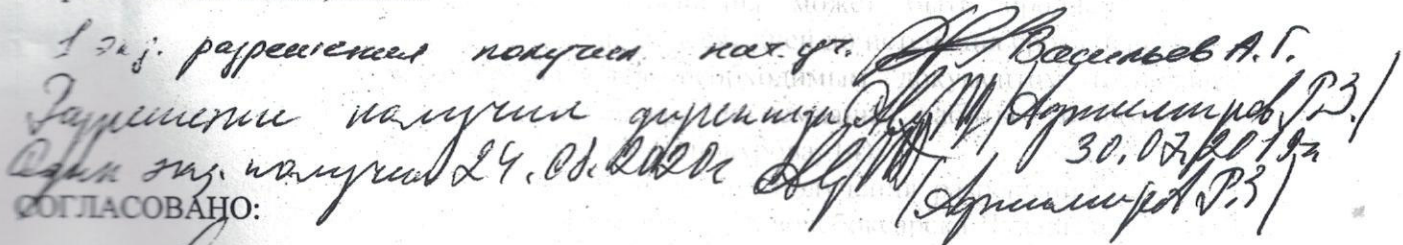 1 экз. разрешения получил нач.уч. /Васильев А.Г.
Разрешение получил директор / Р.З./
30.07.2019г
Один экз. получил 24.08.2020г
/ Р.З/
СОГЛАСОВАНО: